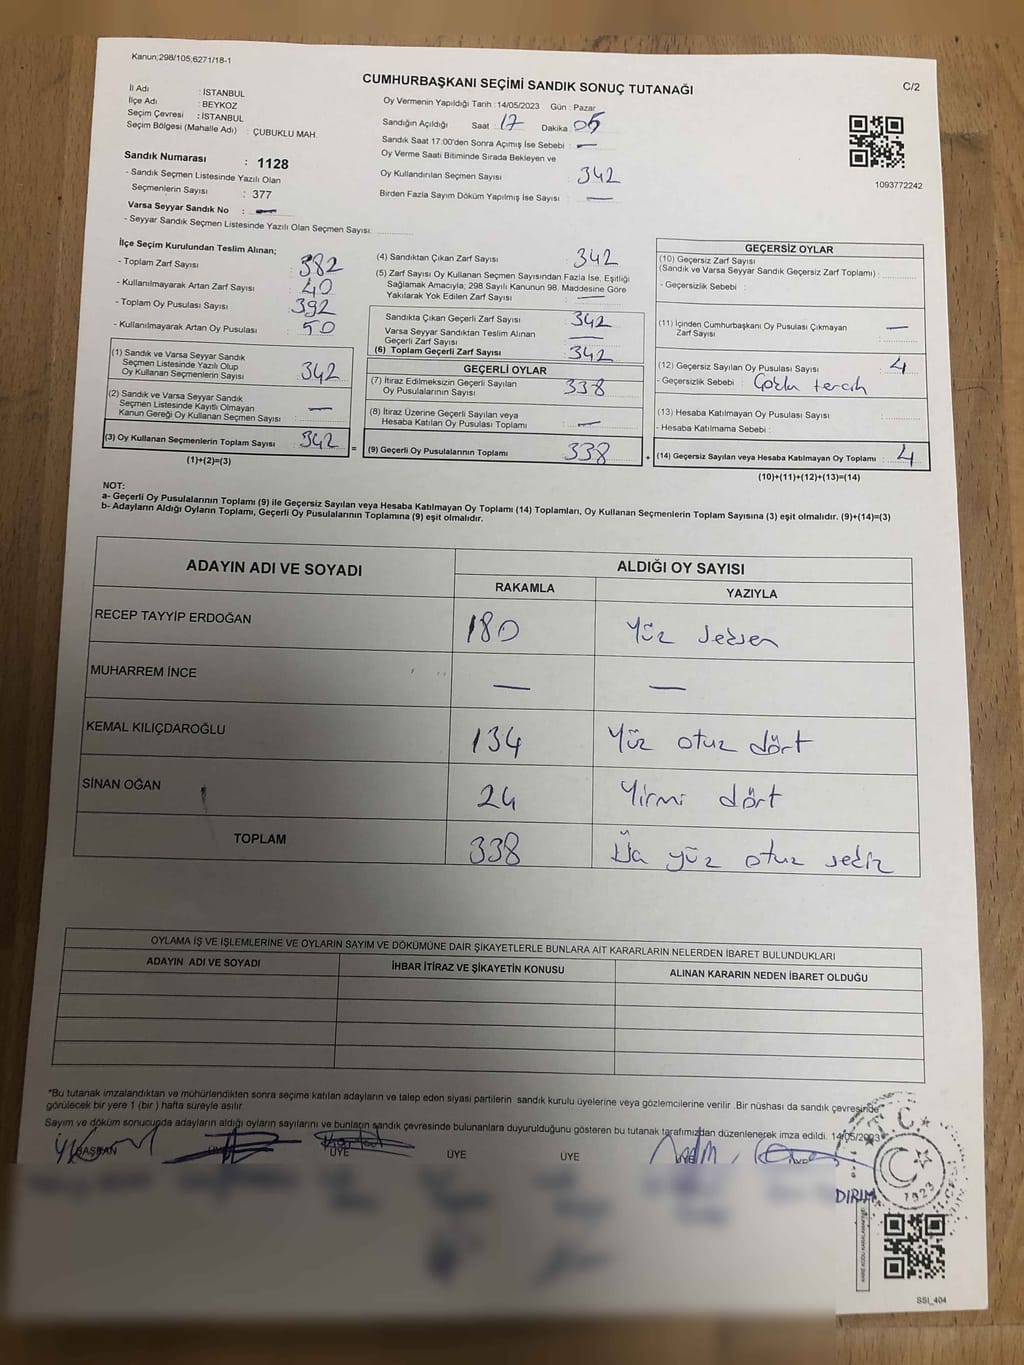 Kanun;298/105;6271/18-1
CUMHURBAŞKANI SEÇİMİ SANDIK SONUÇ TUTANAĞI
C/2
İl Adı : İSTANBUL
İlçe Adı : BEYKOZ
Seçim Çevresi : İSTANBUL
Seçim Bölgesi (Mahalle Adı) : ÇUBUKLU MAH.
Sandık Numarası : 1128
- Sandık Seçmen Listesinde Yazılı Olan
Seçmenlerin Sayısı : 377
Varsa Seyyar Sandık No : —
- Seyyar Sandık Seçmen Listesinde Yazılı Olan Seçmen Sayısı:
Oy Vermenin Yapıldığı Tarih : 14/05/2023 Gün : Pazar
Sandığın Açıldığı Saat : 17 Dakika : 05
Sandık Saat 17.00'den Sonra Açımış İse Sebebi : —
Oy Verme Saati Bitiminde Sırada Bekleyen ve
Oy Kullandırılan Seçmen Sayısı : 342
Birden Fazla Sayım Döküm Yapılmış İse Sayısı : —
1093772242
İlçe Seçim Kurulundan Teslim Alınan;
- Toplam Zarf Sayısı : 382
- Kullanılmayarak Artan Zarf Sayısı : 40
- Toplam Oy Pusulası Sayısı : 392
- Kullanılmayarak Artan Oy Pusulası : 50
(1) Sandık ve Varsa Seyyar Sandık
Seçmen Listesinde Yazılı Olup
Oy Kullanan Seçmenlerin Sayısı : 342
(2) Sandık ve Varsa Seyyar Sandık
Seçmen Listesinde Kayıtlı Olmayan
Kanun Gereği Oy Kullanan Seçmen Sayısı : —
(3) Oy Kullanan Seçmenlerin Toplam Sayısı : 342
(1)+(2)=(3)
=
(4) Sandıktan Çıkan Zarf Sayısı : 342
(5) Zarf Sayısı Oy Kullanan Seçmen Sayısından Fazla İse, Eşitliği
Sağlamak Amacıyla; 298 Sayılı Kanunun 98. Maddesine Göre
Yakılarak Yok Edilen Zarf Sayısı : —
Sandıkta Çıkan Geçerli Zarf Sayısı : 342
Varsa Seyyar Sandıktan Teslim Alınan
Geçerli Zarf Sayısı : —
(6) Toplam Geçerli Zarf Sayısı : 342
GEÇERLİ OYLAR
(7) İtiraz Edilmeksizin Geçerli Sayılan
Oy Pusulalarının Sayısı : 338
(8) İtiraz Üzerine Geçerli Sayılan veya
Hesaba Katılan Oy Pusulası Toplamı : —
(9) Geçerli Oy Pusulalarının Toplamı : 338
+
GEÇERSİZ OYLAR
(10) Geçersiz Zarf Sayısı
(Sandık ve Varsa Seyyar Sandık Geçersiz Zarf Toplamı) :
- Geçersizlik Sebebi :
(11) İçinden Cumhurbaşkanı Oy Pusulası Çıkmayan
Zarf Sayısı : —
(12) Geçersiz Sayılan Oy Pusulası Sayısı : 4
- Geçersizlik Sebebi : Çoklu tercih
(13) Hesaba Katılmayan Oy Pusulası Sayısı :
- Hesaba Katılmama Sebebi :
(14) Geçersiz Sayılan veya Hesaba Katılmayan Oy Toplamı : 4
(10)+(11)+(12)+(13)=(14)
NOT:
a- Geçerli Oy Pusulalarının Toplamı (9) ile Geçersiz Sayılan veya Hesaba Katılmayan Oy Toplamı (14) Toplamları, Oy Kullanan Seçmenlerin Toplam Sayısına (3) eşit olmalıdır. (9)+(14)=(3)
b- Adayların Aldığı Oyların Toplamı, Geçerli Oy Pusulalarının Toplamına (9) eşit olmalıdır.
ADAYIN ADI VE SOYADI
ALDIĞI OY SAYISI
RAKAMLA YAZIYLA
RECEP TAYYİP ERDOĞAN 180 Yüz seksen
MUHARREM İNCE — —
KEMAL KILIÇDAROĞLU 134 Yüz otuz dört
SİNAN OĞAN 24 Yirmi dört
TOPLAM 338 Üç yüz otuz sekiz
OYLAMA İŞ VE İŞLEMLERİNE VE OYLARIN SAYIM VE DÖKÜMÜNE DAİR ŞİKAYETLERLE BUNLARA AİT KARARLARIN NELERDEN İBARET BULUNDUKLARI
ADAYIN ADI VE SOYADI İHBAR İTİRAZ VE ŞİKAYETİN KONUSU ALINAN KARARIN NEDEN İBARET OLDUĞU
*Bu tutanak imzalandıktan ve mühürlendikten sonra seçime katılan adayların ve talep eden siyasi partilerin sandık kurulu üyelerine veya gözlemcilerine verilir. Bir nüshası da sandık çevresinde
görülecek bir yere 1 (bir ) hafta süreyle asılır.
Sayım ve döküm sonucunda adayların aldığı oyların sayılarını ve bunların sandık çevresinde bulunanlara duyurulduğunu gösteren bu tutanak tarafımızdan düzenlenerek imza edildi. 14/05/2023
BAŞKAN ÜYE ÜYE ÜYE ÜYE ÜYE ÜYE
T.C.
1923
DIRIM
SSI_404